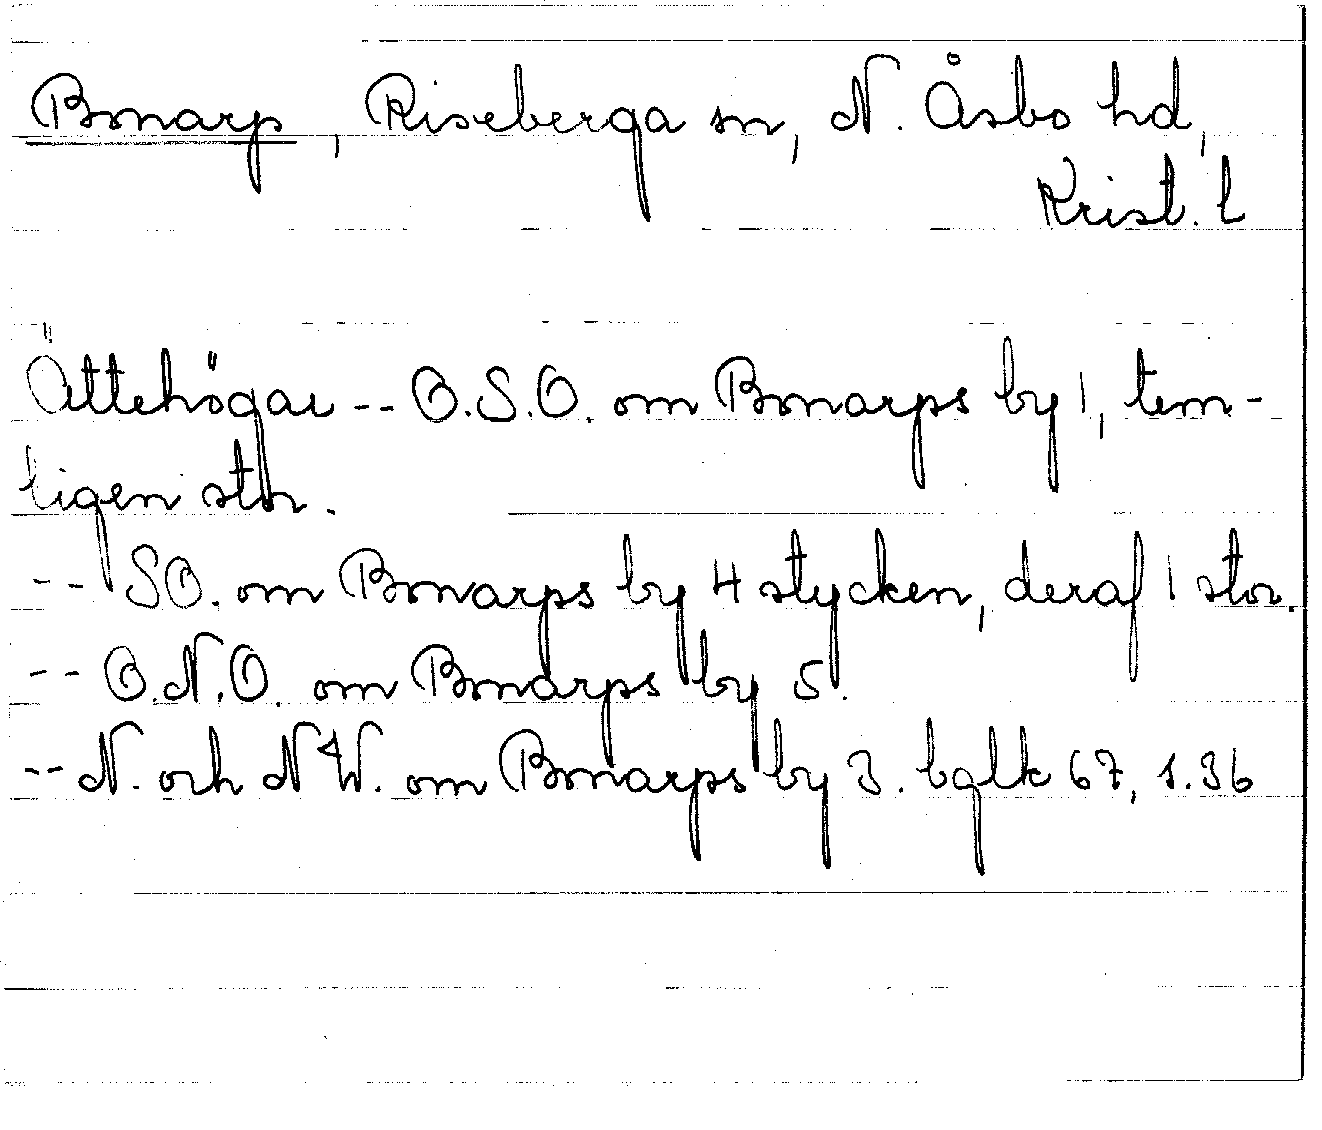 Bonarp, Riseberga sn, N. Åsbo hd,
Krist. l
Ättehögar -- O.S.O. om Bonarps by 1, tem-
ligen stor.
-- SO. om Bonarps by 4 stycken, deraf 1 stor.
-- O.N.O. om Bonarps by 5.
-- N. och NW. om Bonarps by 3. bglk 67, s. 36